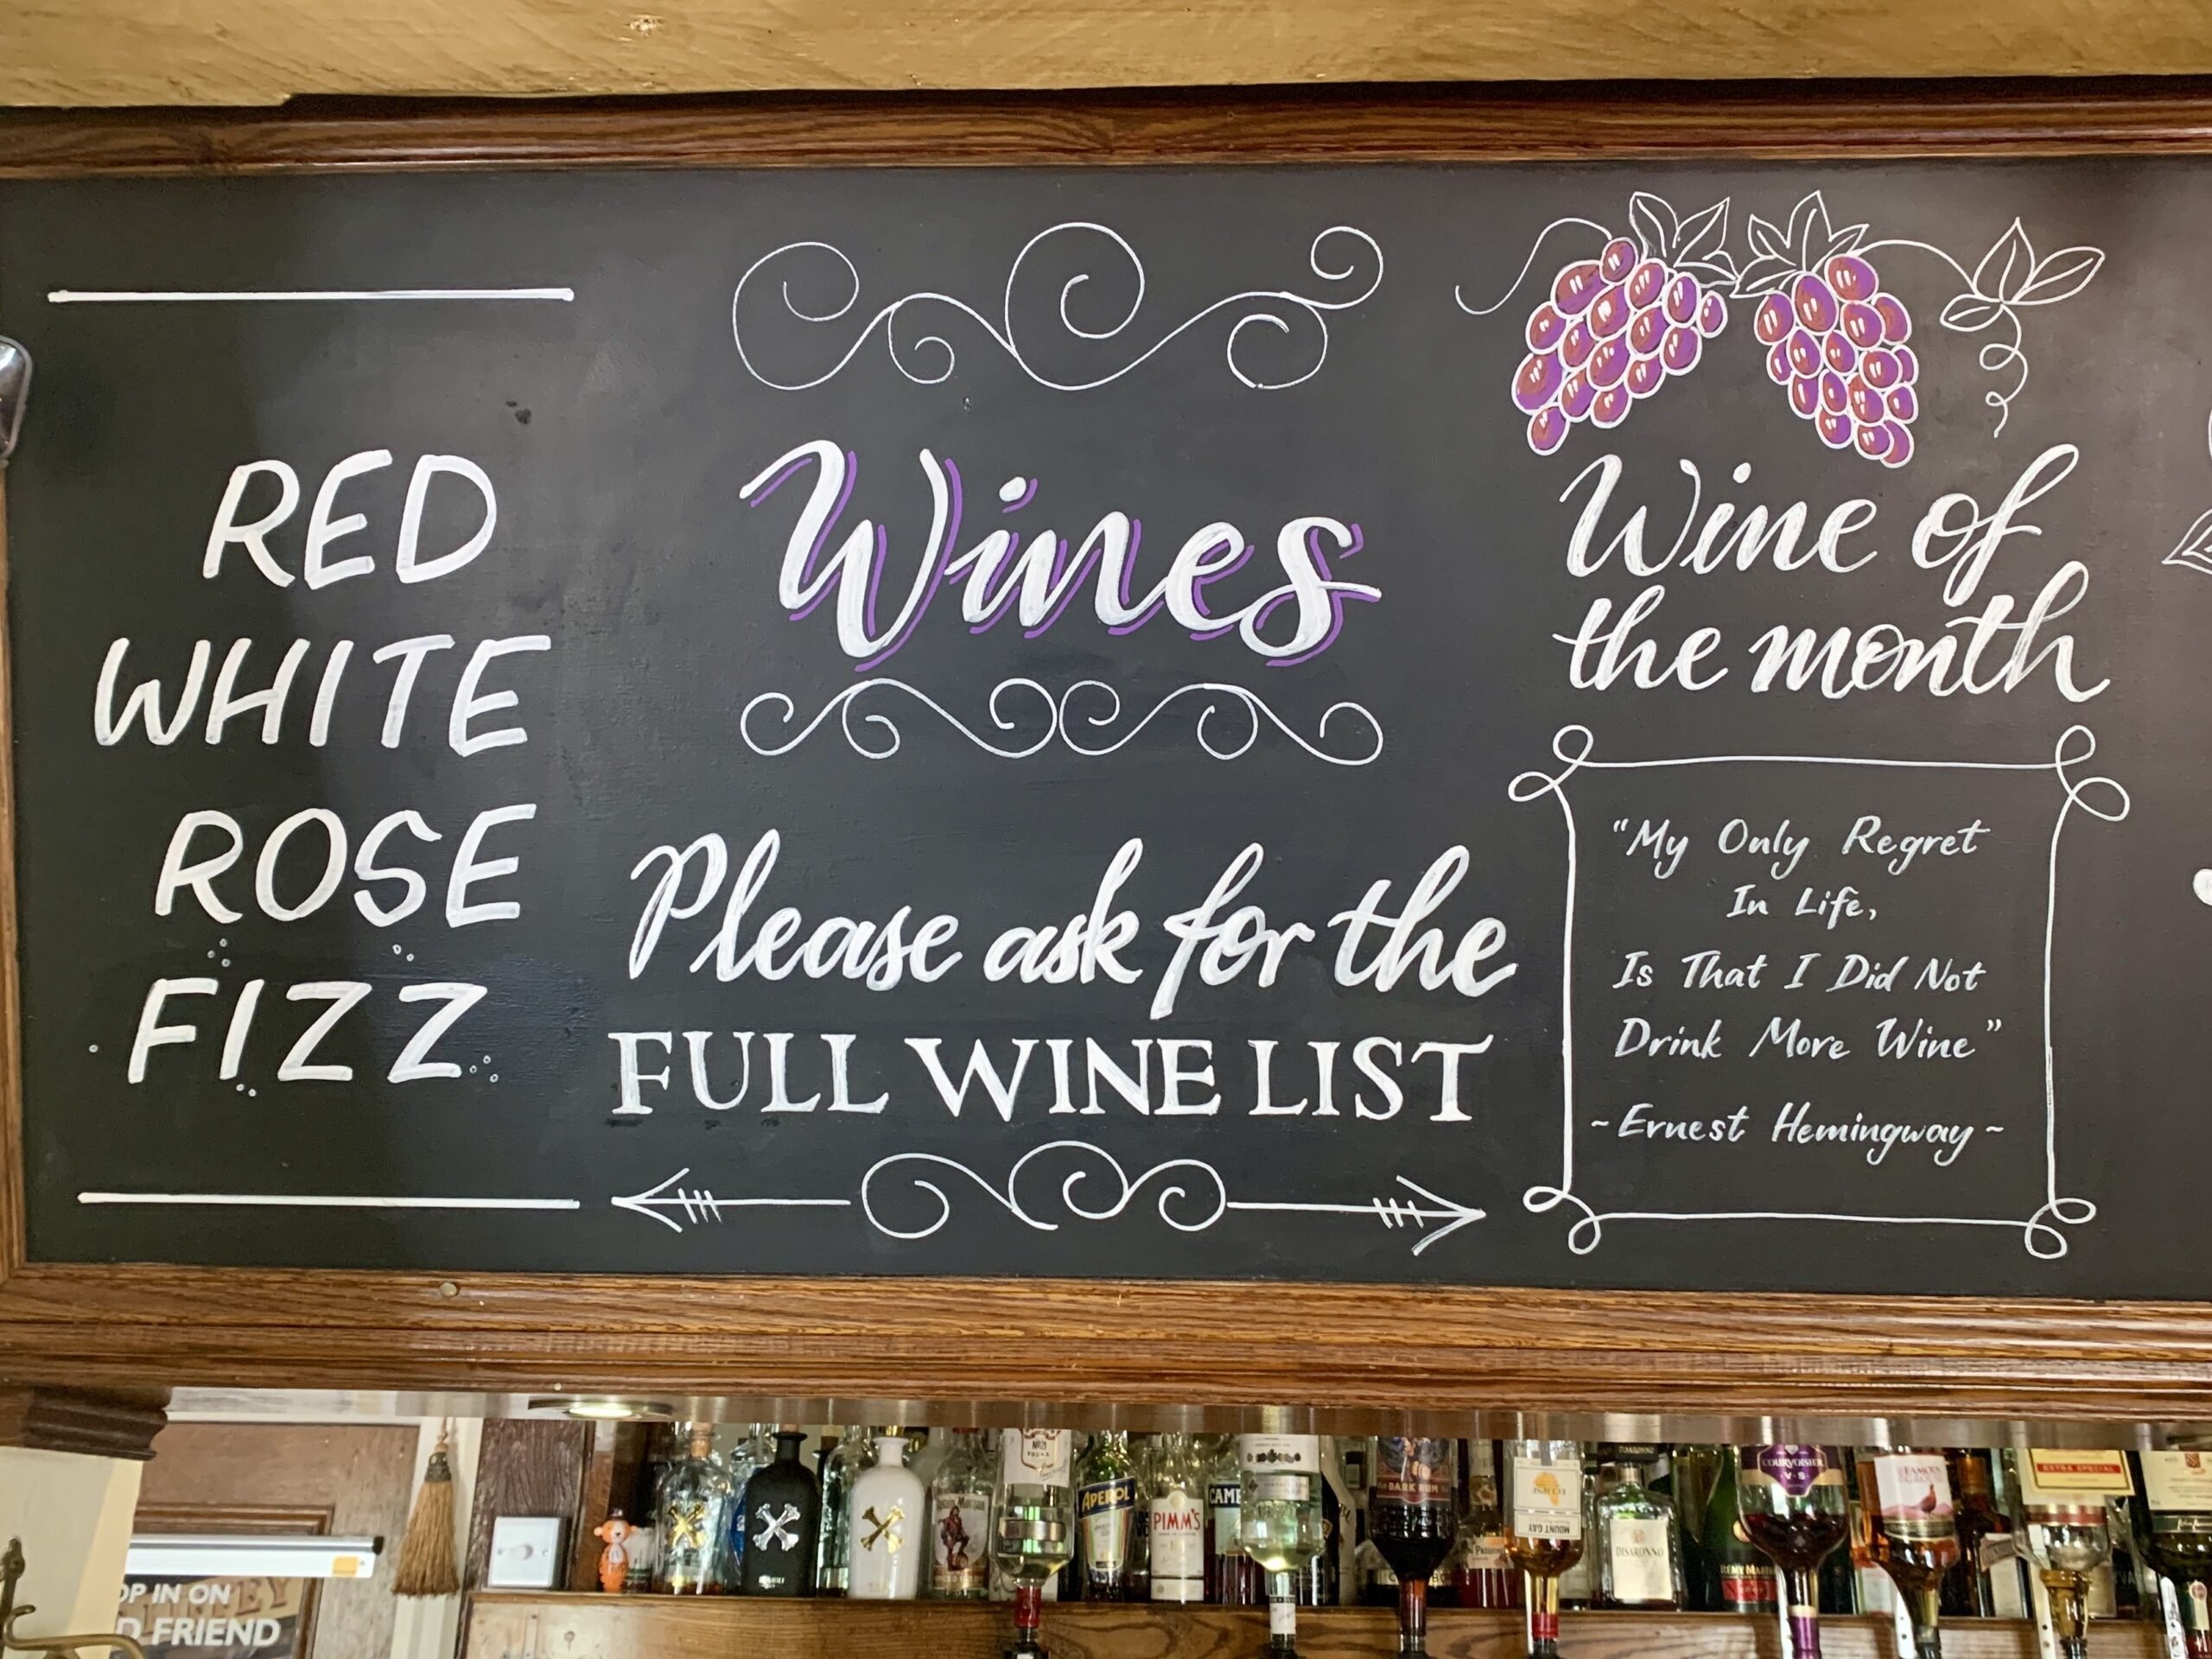 RED
WHITE
ROSE
FIZZ
Wines
Please ask for the
FULL WINE LIST
Wine of
the month
"My Only Regret
In Life,
Is That I Did Not
Drink More Wine"
~Ernest Hemingway~
OP IN ON
D FRIEND
APEROL
PIMM'S
CAM
DARK RUM
ECLIPSE
MOUNT GAY
DISARONNO
REMY MARTIN
COURVOISIER
V·S
FAMOUS
EXTRA SPECIAL